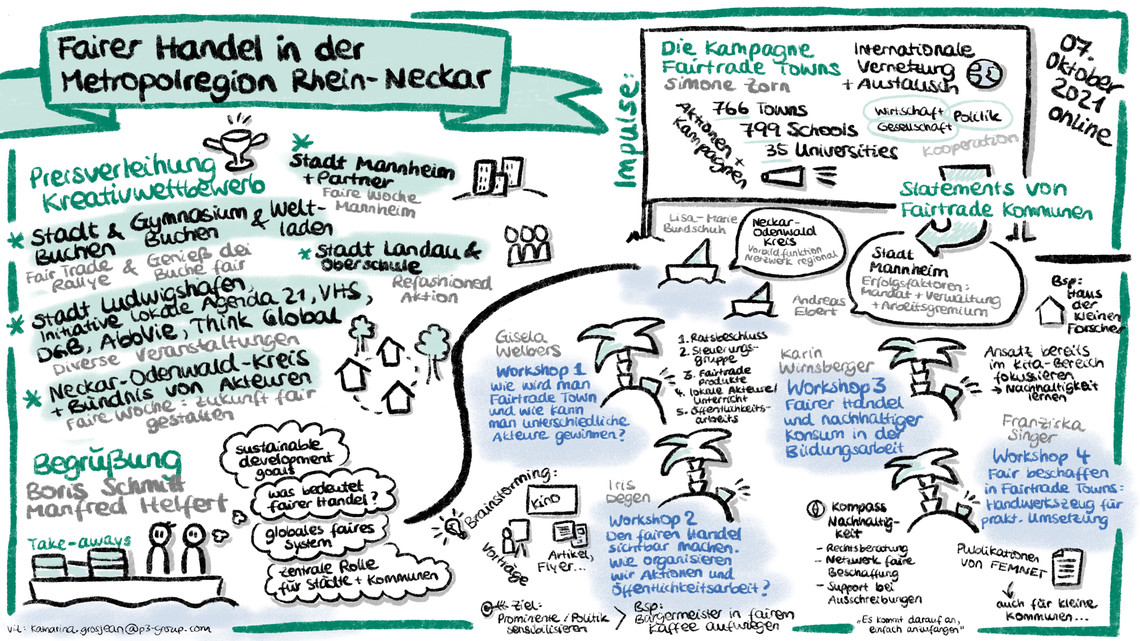 Fairer Handel in der
Metropolregion Rhein-Neckar
Preisverleihung
Kreativwettbewerb
Stadt & Gymnasium & Welt-
Buchen Buchen laden
Fair Trade & Genieß dei
Rallye Buche fair
Stadt Ludwigshafen,
Initiative lokale Agenda 21, VHS,
DGB, AbbVie, Think Global
Diverse Veranstaltungen
Neckar-Odenwald-Kreis
+ Bündnis von Akteuren
Faire Woche: Zukunft fair
gestalten
Stadt Mannheim
+ Partner
Faire Woche
Mannheim
Stadt Landau &
Oberschule
Refashioned
Aktion
Begrüßung
Boris Schmitt
Manfred Helfert
Take-aways
sustainable
development
goals
was bedeutet
fairer Handel?
globales faires
System
zentrale Rolle
für Städte + Kommunen
viz: katharina.grosjean@p3-group.com
Impulse:
Die Kampagne
Fairtrade Towns
Simone Zorn
Aktionen +
Kampagnen
766 Towns
799 Schools
35 Universities
Internationale
Vernetzung
+ Austausch
Wirtschaft Politik
Gesellschaft
Kooperation
07.
Oktober
2021
online
Statements von
Fairtrade Kommunen
Lisa-Marie
Bundschuh
Neckar-
Odenwald
Kreis
Vorbildfunktion
Netzwerk regional
Andreas
Ebert
Stadt
Mannheim
Erfolgsfaktoren:
Mandat + Verwaltung
+ Arbeitsgremium
Gisela
Welbers
Workshop 1
Wie wird man
Fairtrade Town
und wie kann
man unterschiedliche
Akteure gewinnen?
1. Ratsbeschluss
2. Steuerungs-
gruppe
3. Fairtrade
Produkte
4. lokale Akteure/
Unterricht
5. Öffentlichkeits-
arbeits
Brainstorming:
Kino
Vorträge
Artikel,
Flyer...
Iris
Degen
Workshop 2
Den fairen Handel
sichtbar machen.
Wie organisieren
wir Aktionen und
Öffentlichkeitsarbeit?
Ziel:
Prominente / Politik
sensibilisieren
> Bsp:
Bürgermeister in fairem
Kaffee aufwiegen
Karin
Wirnsberger
Workshop 3
Fairer Handel
und nachhaltiger
Konsum in der
Bildungsarbeit
Bsp:
Haus
der
kleinen
Forscher
Ansatz bereits
im Kita-Bereich
fokussieren
→ Nachhaltigkeit
lernen
Franziska
Singer
Workshop 4
Fair beschaffen
in Fairtrade Towns:
Handwerkszeug für
prakt. Umsetzung
Kompass
Nachhaltig-
keit
- Rechtsberatung
- Netzwerk faire
Beschaffung
- Support bei
Ausschreibungen
Publikationen
von FEMNET
auch für kleine
Kommunen...
"Es kommt darauf an,
einfach anzufangen"